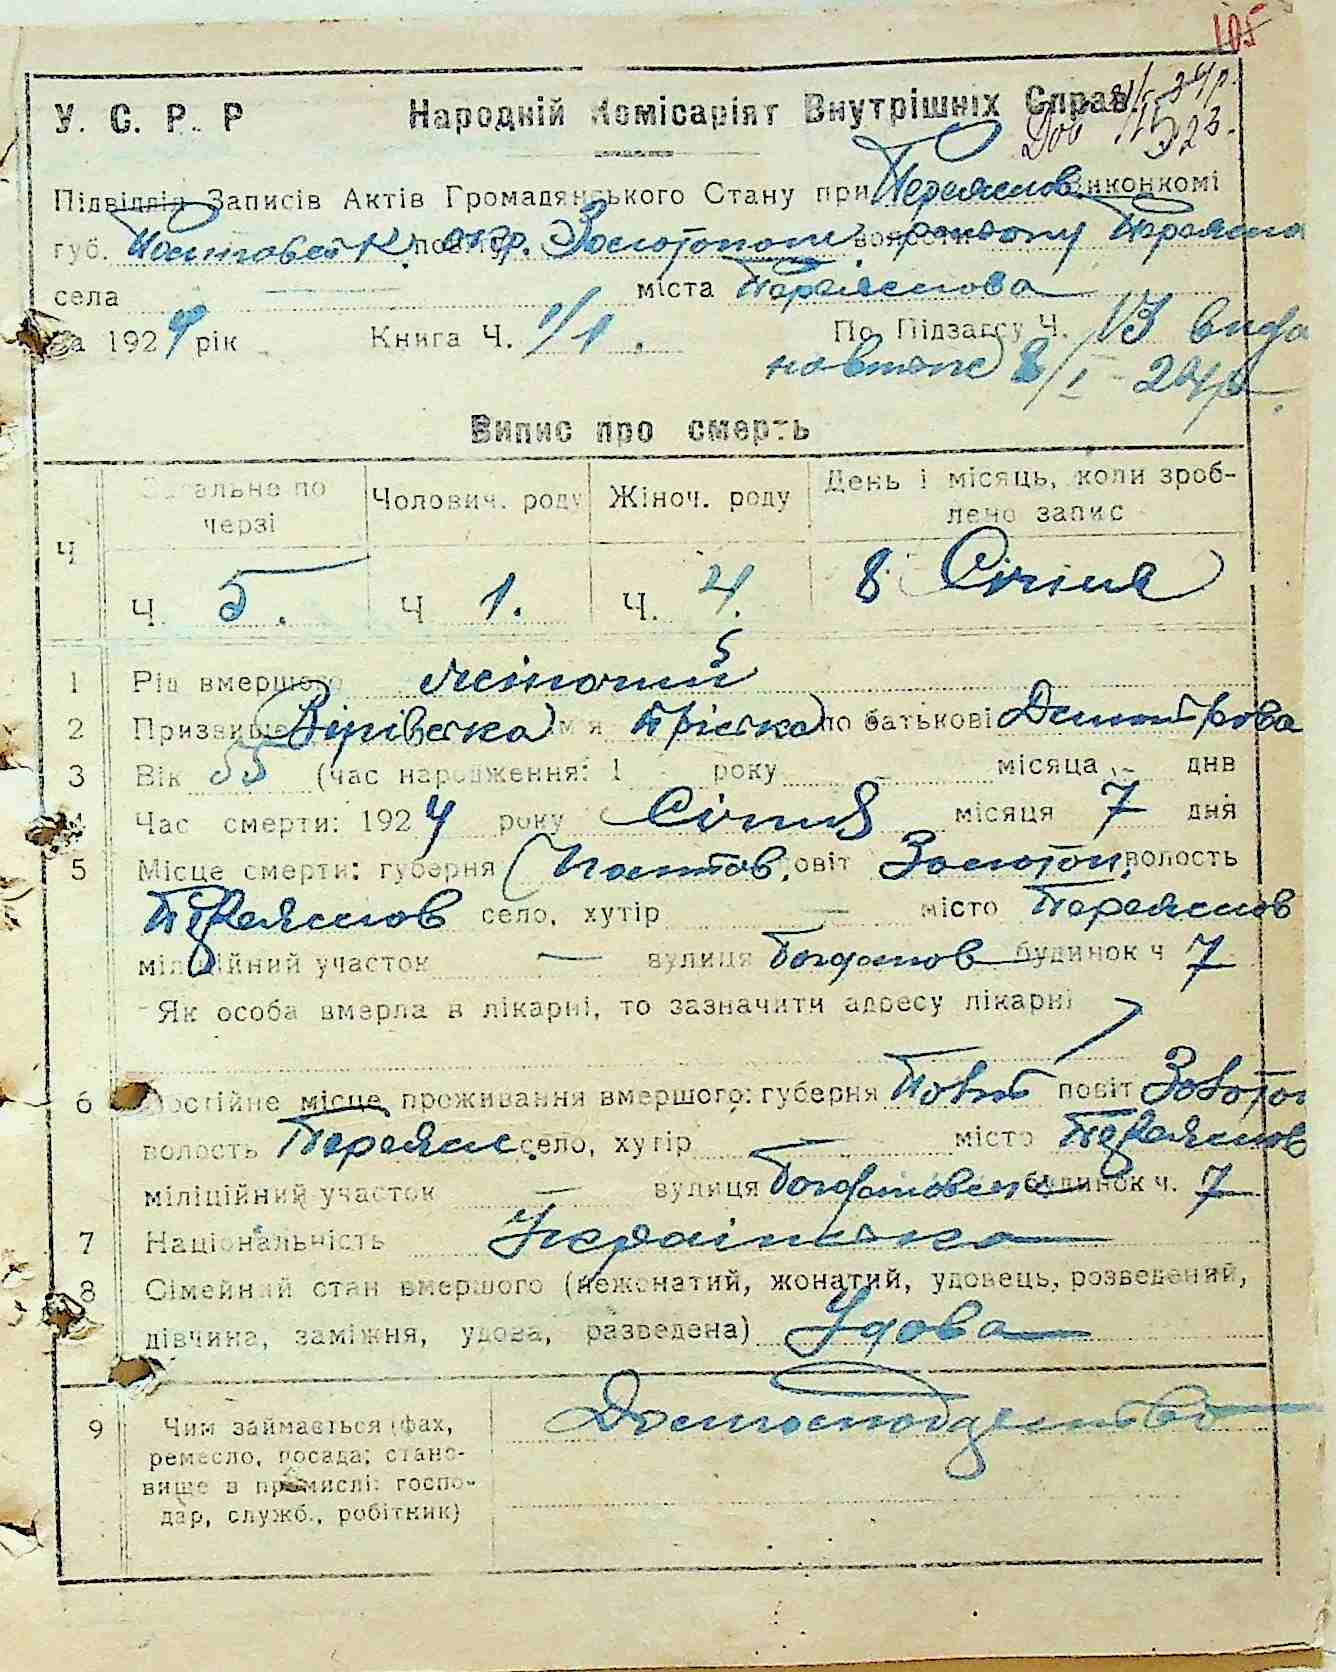 105
У. С. Р. Р Народній Комісаріят Внутрішніх Справ
Підвідділ Записів Актів Громадянського Стану при Переяслов Виконкомі
губ. Полтавськ. окр. Золотонош району Переясло
села міста Переяслова
за 1924 рік Книга Ч. 1/1. По Підзагсу Ч.
8/I-24р.
Випис про смерть
Ч Загально по черзі Чолович. роду Жіноч. роду День і місяць, коли зроблено запис
Ч 5. Ч 1. Ч. 4. 8 Січня
5
1 Рід вмершого жіночий
2 Призвище Вірівська ім'я Пріська по батькові Демитрова
3 Вік 55 (час народження: 1 року місяца днв
4 Час смерти: 1924 року Січня місяця 7 дня
5 Місце смерти: губерня Полтов. повіт Золотон. волость
Переяслов село, хутір — місто Переяслов
міліційний участок — вулиця Богданов будинок ч 7
Як особа вмерла в лікарні, то зазначити адресу лікарні
6 Постійне місце проживання вмершого: губерня Полт повіт Золотон
волость Переясл. село, хутір місто Переяслов
міліційний участок — вулиця Богдановська будинок ч. 7
7 Національність Українська
8 Сімейний стан вмершого (нежонатий, жонатий, удовець, розведений,
дівчина, заміжня, удова, разведена) Удова
9 Чим займається (фах, Домогосподарство
ремесло, посада; стано-
вище в промислі: госпо-
дар, служб., робітник)